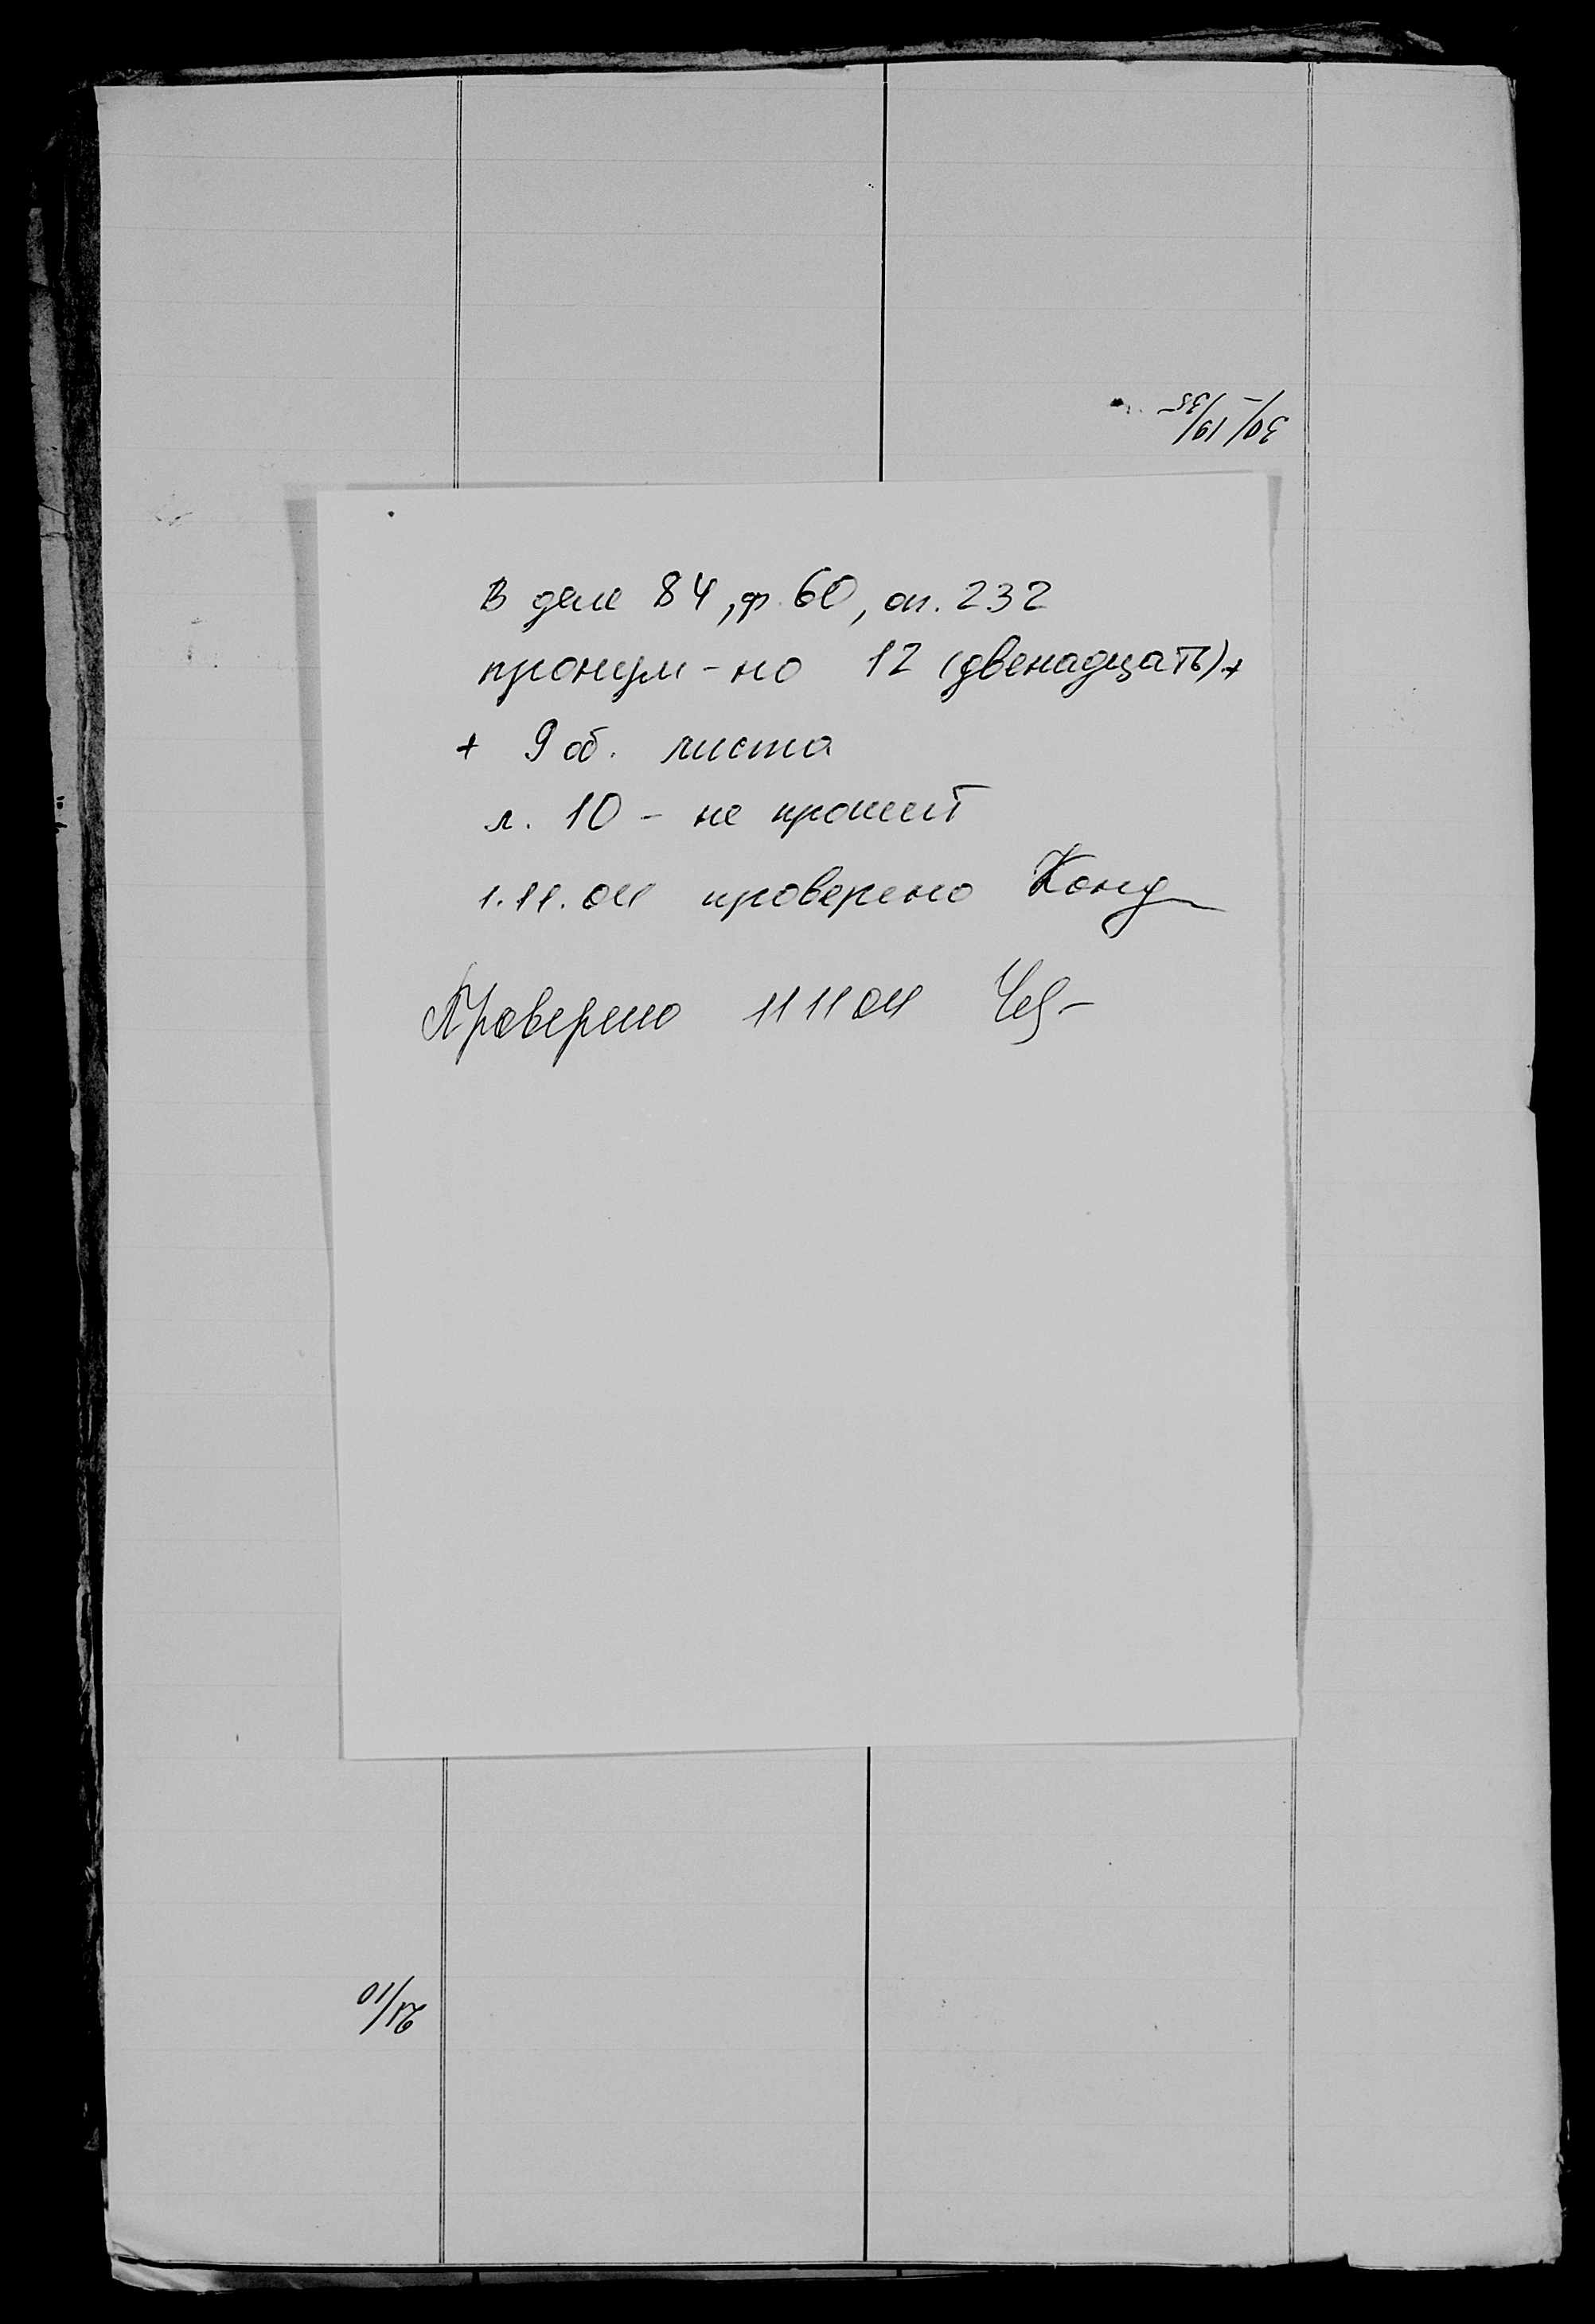 30/19/35
В деле 84, ф. 60, оп. 232
пронум-но 12 (двенадцать) +
+ 9 об. листа
л. 10 - не прошит
1.11.04 проверено Конд
Проверено 11 11 04
21/10